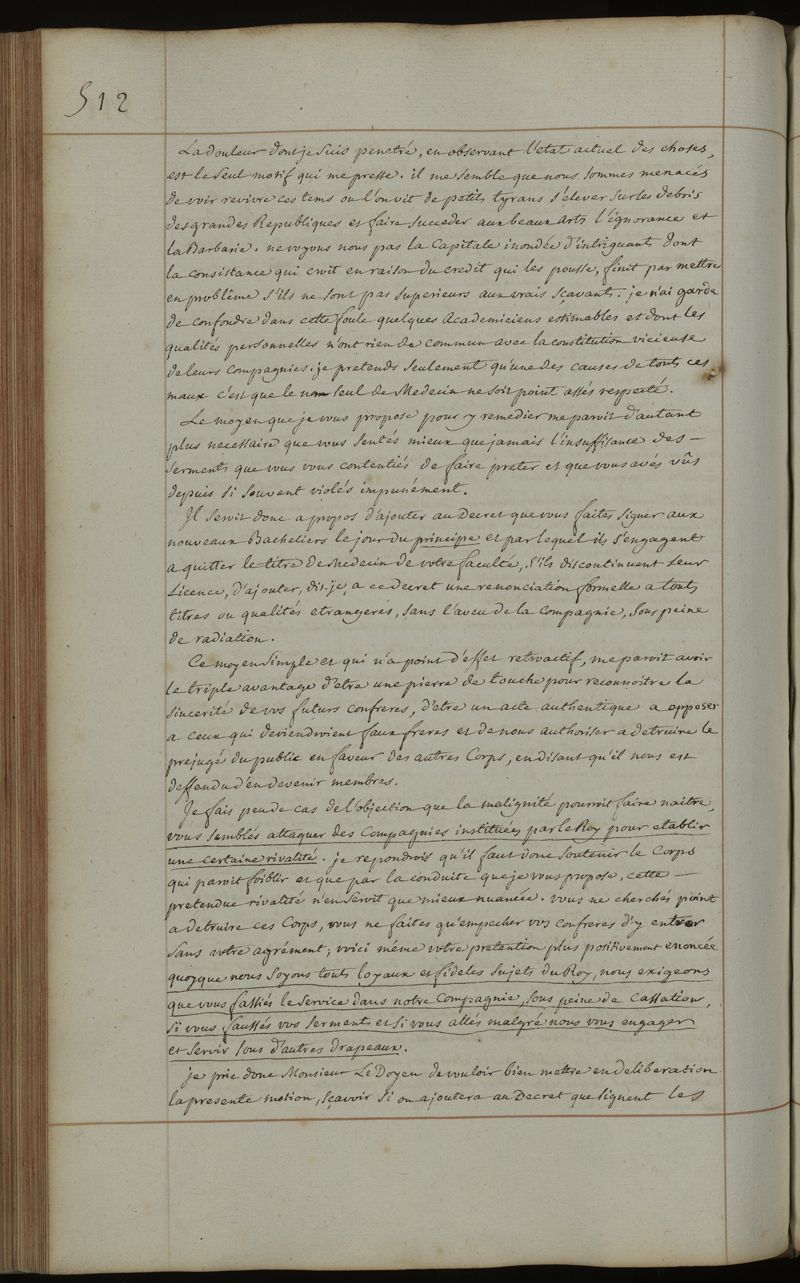 512
La douleur dont je suis penetré, en observant l'etat actuel des choses,
est le seul motif qui me presse. il me semble que nous sommes menacés
de voir revivre ces tems ou l'on vit de petits tyrans s'elever sur les debris
des grandes Republiques et faire succeder aux beaux arts l'ignorance et
la Barbarie. ne voyons nous pas la Capitale inondée d'intriguants dont
la consistance qui croit en raison du credit qui les pousse, finit par mettre
en problême s'ils ne sont pas superieurs aux vrais sçavants. je n'ai garde
de confondre dans cette foule quelques Academiciens estimables et dont les
qualités personnelles n'ont rien de commun avec la constitution vicieuse
de leurs Compagnies. je pretends seulement qu'une des causes de touts ces
maux c'est que le nom seul de Medecin ne soit point assés respecté.
Le moyen que je vous propose pour y remedier me paroit d'autant
plus necessaire que vous sentés mieux que jamais l'insuffisance des -
serments que vous vous contentiés de faire preter et que vous avés vûs
depuis si souvent violés impunément.
Il seroit donc a propos d'ajouter au Decret que vous faites signer aux
nouveaux Bacheliers le jour du principe et par lequel ils s'engagent
a quitter le titre de Medecin de votre faculté, s'ils discontinuent leur
Licence, d'ajouter, dis-je, a ce decret une renonciation formelle a touts
titres ou qualités etrangeres, sans l'aveu de la Compagnie, sous peine
de radiation.
Ce moyen simple et qui n'a point d'effet retroactif, me paroit avoir
le triple avantage d'etre une pierre de touche pour reconnoitre la
sincerité de vos futurs confreres, d'etre un acte authentique a opposer
a ceux qui deviendroient faux freres et de nous authoriser a detruire le
prejugé du public en faveur des autres Corps, en disant qu'il nous est
deffendu d'en devenir membres.
Je fais peu de cas de l'objection que la malignité pourroit faire naitre,
vous semblés attaquer des Compagnies instituées par le Roy pour etablir
une certaine rivalité. je repondrois qu'il faut donc soutenir le Corps
qui paroit foiblir et que par la conduite que je vous propose, cette -
pretendue rivalité n'en seroit que mieux nuancée. vous ne cherchés point
a detruire ces Corps, vous ne faites qu'empecher vos confreres d'y entrer
sans votre agrément; voici même votre pretention plus positivement enoncée
quoyque nous soyons touts loyaux et fideles sujets du Roy, nous exigeons
que vous fassiés le service dans notre Compagnie, sous peine de cassation,
si vous faussés vos serments et si vous allés malgré nous vous engager
et servir sous d'autres drapeaux.
je prie donc Monsieur Le Doyen de vouloir bien mettre en deliberation
la presente motion, sçavoir si on ajoutera au Decret que signent les